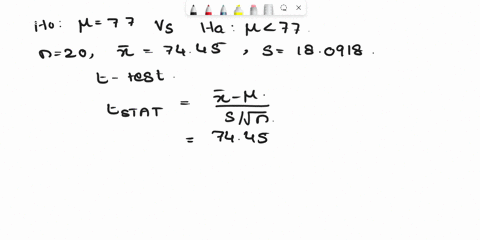 Ho: μ=77 VS Ha: μ<77.
n=20, x̄ = 74.45, S= 18.0918.
t-test.
tSTAT = x̄-μ.
S/√n.
= 74.45